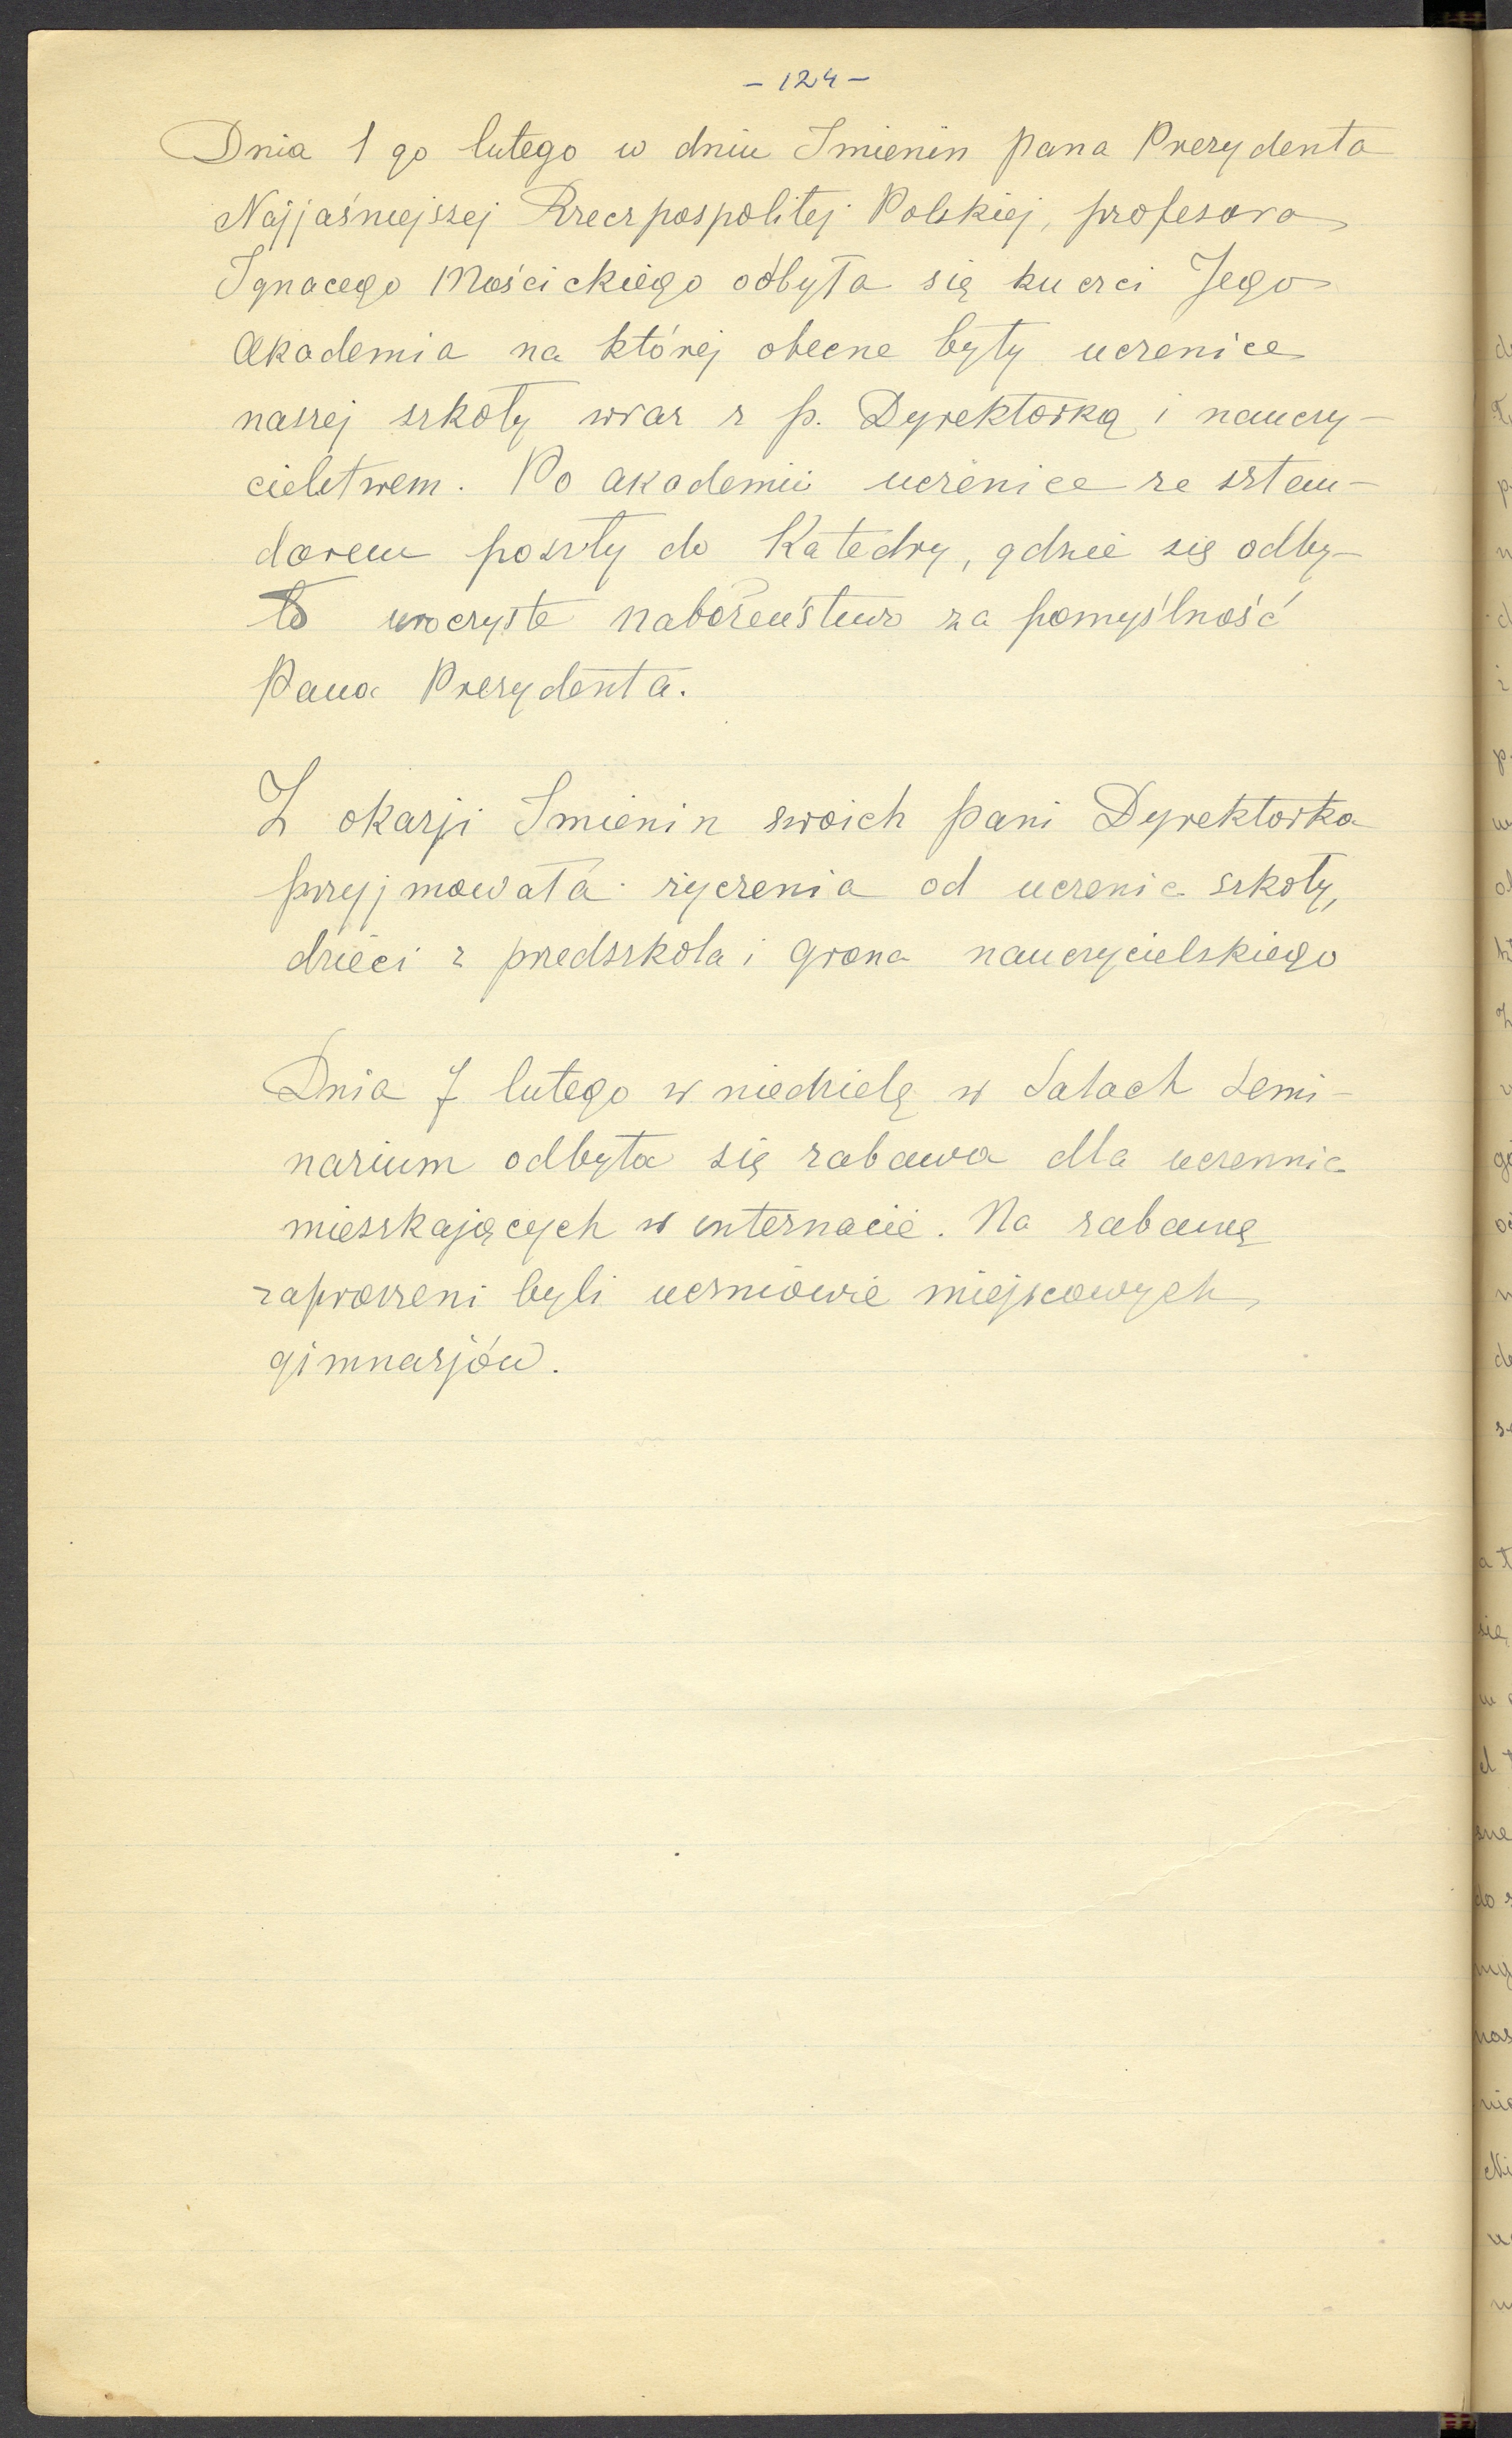 - 124 -
Dnia 1 go lutego w dniu Imienin pana Prezydenta
Najjaśniejszej Rzeczpospolitej Polskiej, profesora
Ignacego Mościckiego odbyła się ku czci Jego
Akademia na której obecne były uczenice
naszej szkoły wraz z p. Dyrektorką i nauczy-
cielstwem. Po akademii uczenice ze sztan-
darem poszły do Katedry, gdzie się odby-
ło uroczyste nabożeństwo za pomyślność
Pana Prezydenta.
Z okazji Imienin swoich pani Dyrektorka
przyjmowała życzenia od uczenic szkoły,
dzieci z przedszkola i grona nauczycielskiego
Dnia 7 lutego w niedzielę w Salach Semi-
narium odbyła się zabawa dla uczennic
mieszkających w internacie. Na zabawę
zaproszeni byli uczniowie miejscowych
gimnazjów.